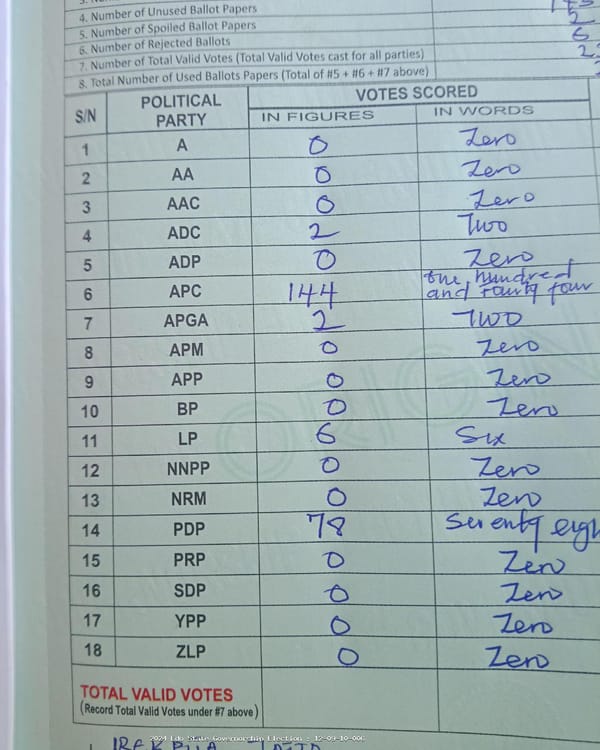 4. Number of Unused Ballot Papers
5. Number of Spoiled Ballot Papers 2
6. Number of Rejected Ballots 6
7. Number of Total Valid Votes (Total Valid Votes cast for all parties)
8. Total Number of Used Ballots Papers (Total of #5 + #6 + #7 above)
S/N POLITICAL PARTY VOTES SCORED
IN FIGURES IN WORDS
1 A 0 Zero
2 AA 0 Zero
3 AAC 0 Zero
4 ADC 2 Two
5 ADP 0 Zero
6 APC 144 One hundred and fourty four
7 APGA 2 Two
8 APM 0 Zero
9 APP 0 Zero
10 BP 0 Zero
11 LP 6 Six
12 NNPP 0 Zero
13 NRM 0 Zero
14 PDP 78 Seventy eigh
15 PRP 0 Zero
16 SDP 0 Zero
17 YPP 0 Zero
18 ZLP 0 Zero
TOTAL VALID VOTES
(Record Total Valid Votes under #7 above)
2024 Edo State Governorship Election : 12-09-10-006